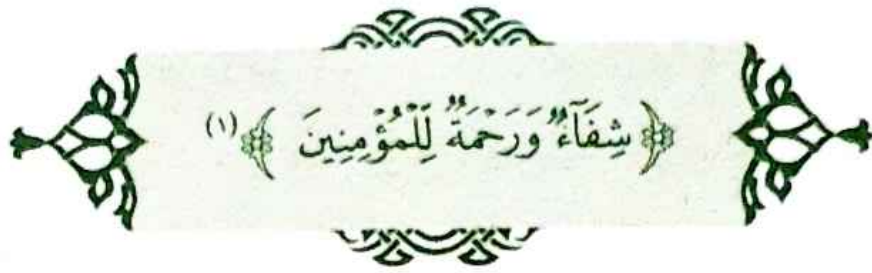 ﴿شِفَآءٌ وَرَحْمَةٌ لِّلْمُؤْمِنِينَ﴾ (١)